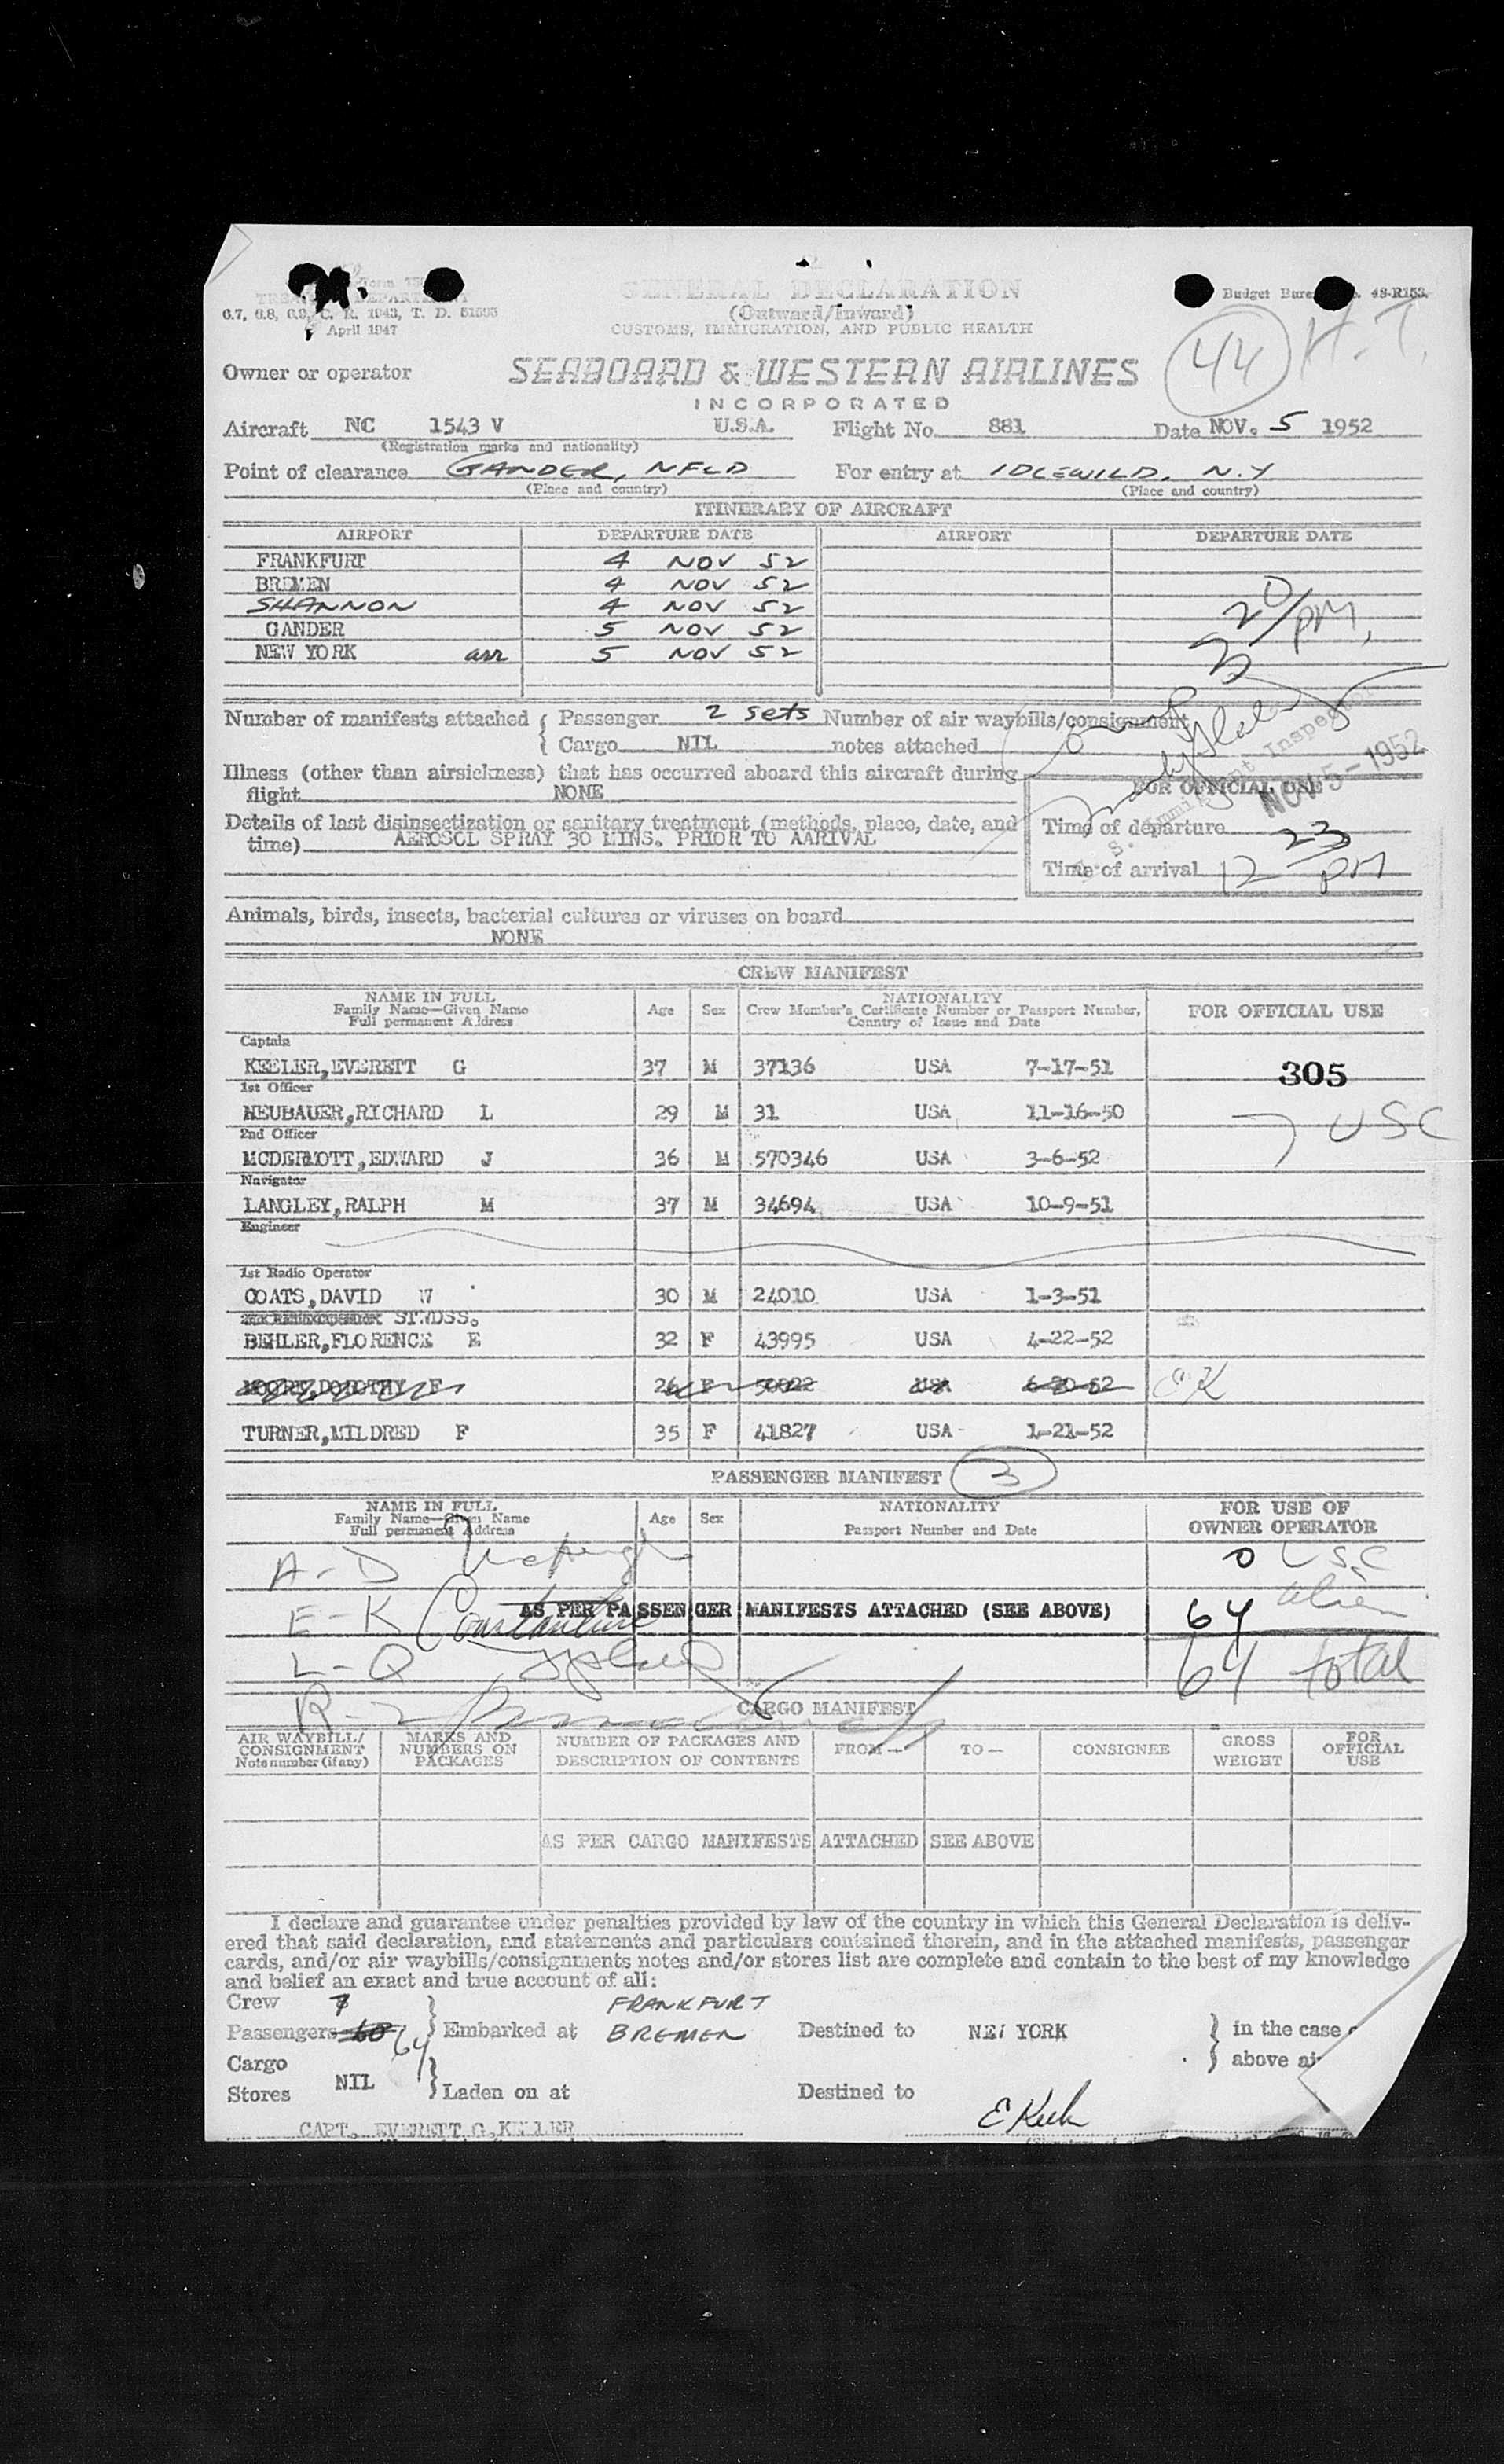 TREASURY DEPARTMENT
6.7, 6.8, 6.9, C. R. 1943, T. D. 51595
April 1947
GENERAL DECLARATION
(Outward/Inward)
CUSTOMS, IMMIGRATION, AND PUBLIC HEALTH
Budget Bure 48-R153.
44 H.T.
Owner or operator SEABOARD & WESTERN AIRLINES
INCORPORATED
Aircraft NC 1543 V U.S.A. Flight No. 881 Date NOV. 5 1952
(Registration marks and nationality)
Point of clearance GANDER, NFLD For entry at IDLEWILD, N.Y
(Place and country) (Place and country)
ITINERARY OF AIRCRAFT
AIRPORT DEPARTURE DATE AIRPORT DEPARTURE DATE
FRANKFURT 4 NOV 52
BREMEN 4 NOV 52
SHANNON 4 NOV 52
GANDER 5 NOV 52
NEW YORK arr 5 NOV 52
2 20/PM
Number of manifests attached { Passenger 2 sets Number of air waybills/consignment
Cargo NIL notes attached
Immigrant Inspector
NOV 5-1952
Illness (other than airsickness) that has occurred aboard this aircraft during
flight NONE
FOR OFFICIAL USE
Details of last disinsectization or sanitary treatment (methods, place, date, and
time) AEROSOL SPRAY 30 MINS. PRIOR TO AARIVAL
Time of departure
Time of arrival 12 23 PM
Animals, birds, insects, bacterial cultures or viruses on board
NONE
CREW MANIFEST
NAME IN FULL
Family Name—Given Name
Full permanent Address
Age Sex
NATIONALITY
Crew Member's Certificate Number or Passport Number,
Country of Issue and Date
FOR OFFICIAL USE
Captain
KEELER,EVERETT G 37 M 37136 USA 7-17-51
305
1st Officer
NEUBAUER,RICHARD L 29 M 31 USA 11-16-50
USC
2nd Officer
MCDERMOTT,EDWARD J 36 M 570346 USA 3-6-52
Navigator
LANGLEY,RALPH M 37 M 34694 USA 10-9-51
Engineer
1st Radio Operator
COATS,DAVID W 30 M 24010 USA 1-3-51
STWDSS.
BEHLER,FLORENCE E 32 F 43995 USA 4-22-52
DOROTHY F 26 F USA 6-20-52 OK
TURNER,MILDRED F 35 F 41827 USA 1-21-52
PASSENGER MANIFEST 3
NAME IN FULL
Family Name—Given Name
Full permanent Address
Age Sex
NATIONALITY
Passport Number and Date
FOR USE OF
OWNER OPERATOR
A-D
0 USC
E-K Constantine
AS PER PASSENGER MANIFESTS ATTACHED (SEE ABOVE)
64 alien
L-Q
64 total
R-Z
CARGO MANIFEST
AIR WAYBILL/
CONSIGNMENT
Note number (if any)
MARKS AND
NUMBERS ON
PACKAGES
NUMBER OF PACKAGES AND
DESCRIPTION OF CONTENTS
FROM— TO— CONSIGNEE
GROSS
WEIGHT
FOR
OFFICIAL
USE
AS PER CARGO MANIFESTS ATTACHED SEE ABOVE
I declare and guarantee under penalties provided by law of the country in which this General Declaration is deliv-
ered that said declaration, and statements and particulars contained therein, and in the attached manifests, passenger
cards, and/or air waybills/consignments notes and/or stores list are complete and contain to the best of my knowledge
and belief an exact and true account of all:
Crew 7 FRANKFURT
Passengers 60 64 } Embarked at BREMEN Destined to NEW YORK } in the case
above
Cargo
Stores NIL } Laden on at Destined to
CAPT. EVERETT G.KELLER